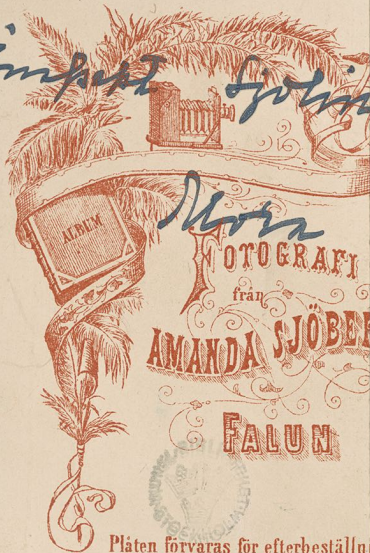 Sjölin
Mora
ALBUM
FOTOGRAFI
från
AMANDA SJÖBER
FALUN
Plåten förvaras för efterbeställn